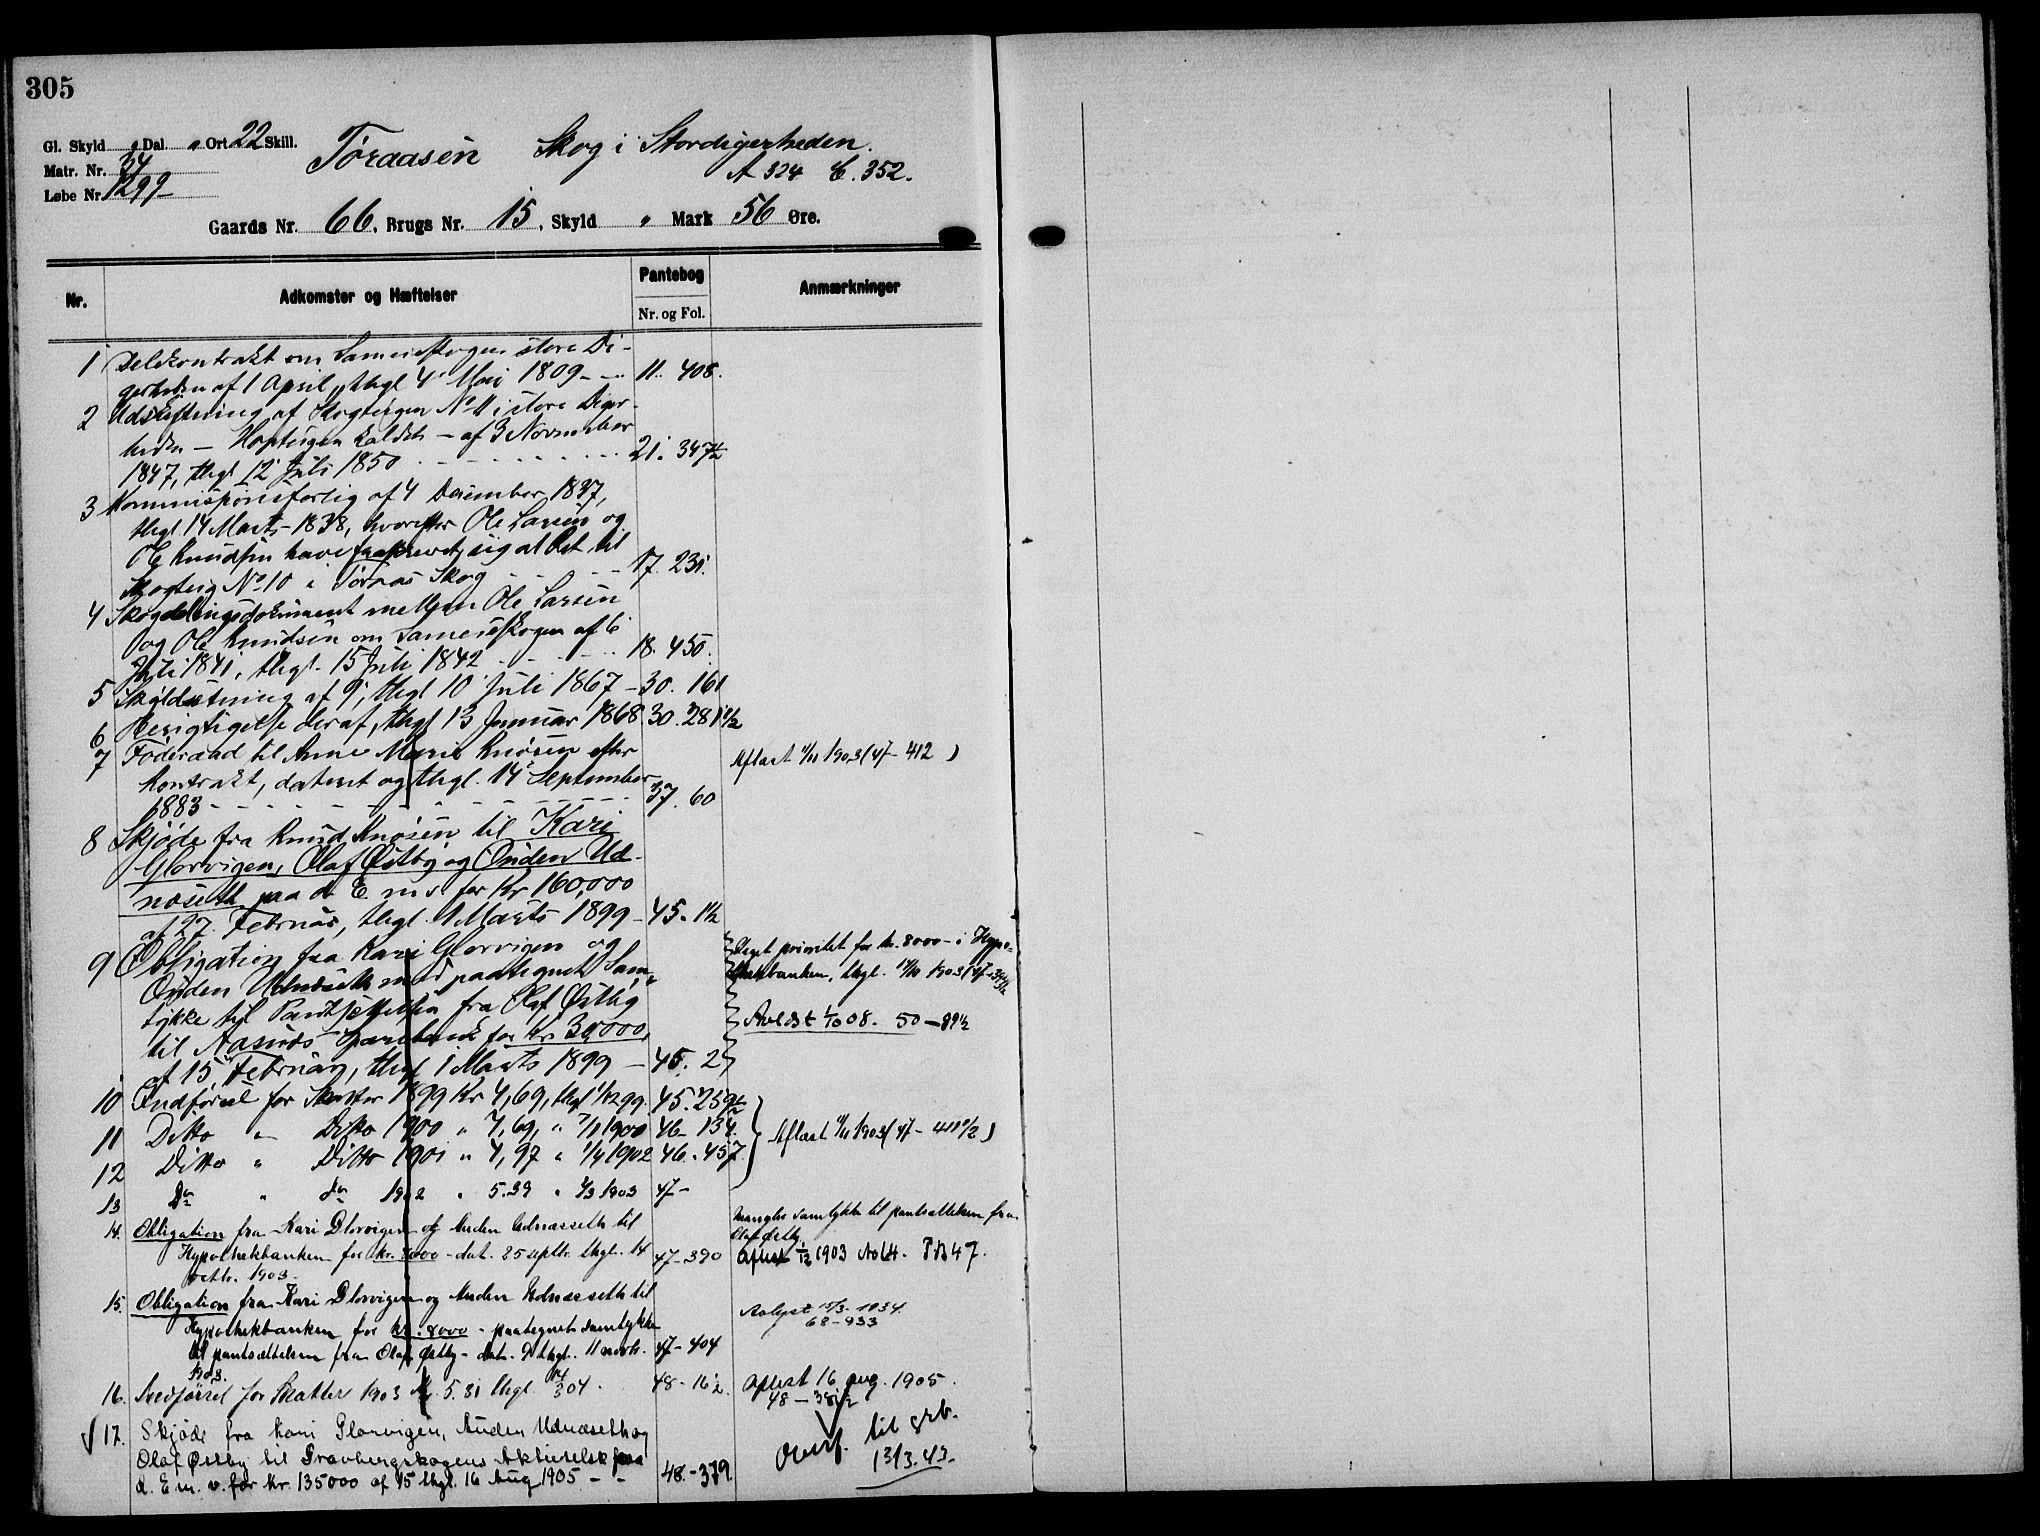 305
Gl. Skyld " Dal. " Ort 22 Skill.
Matr. Nr. 34
Løbe Nr. 1299
Toraasen Skog i Stordigerheden.
A 324 C. 352.
Gaards Nr. 66, Brugs Nr. 15, Skyld " Mark 56 Øre.
Nr. Adkomster og Hæftelser Pantebog Nr. og Fol. Anmærkninger
1 Delekontrakt om Sameieskogen store Di-
gerheden af 1 April, thgl 4 Mai 1809 - - 11. 408.
2 Udskiftning af Skogteigen No 11 i store Diger-
heden - Hopteigen kaldet - af 3 November
1847, thgl 12 Juli 1850 21. 347½
3 Kommissionsforlig af 4 December 1837,
thgl 14 Marts 1838, hvorefter Ole Larsen og
Ole Knudsen have fraskrevet sig al Ret til
Skogteig No 10 i Toraas Skog 17. 231.
4 Skogdelingsdokument mellem Ole Larsen
og Ole Knudsen om Sameieskogen af 6
Juli 1841, thgl. 15 Juli 1842 18. 450.
5 Skyldsetning af 9, thgl 10 Juli 1867 - 30. 161
6 Berigtigelse deraf, thgl 13 Januar 1868 30. 281½
7 Føderaad til Anne Marie Knosen efter
Kontrakt, datert og thgl. 14 September
1883 37. 60
Aflæst 11/11 1903 (47 - 412)
8 Skjøde fra Knud Knosen til Kari
Glorvigen, Olaf Østby og Onden Ud-
næseth paa d. E. m. v. for Kr 160,000
af 27. Februar, thgl. 1 Marts 1899 - 45. 1½
9 Obligation fra Kari Glorvigen og
Onden Udnæseth med paategnet Sam-
tykke til Pantsættelsen fra Olaf Østby
til Aasnæs Sparebank for Kr. 30,000,
af 15 Februar, thgl 1 Marts 1899 - 45. 2
veget prioritet for kr. 8000 - i Hypo-
thekbanken, thgl. 14/10 1903 (47-394½
Avlæst 1/10 08. 50 - 89½
10 Indførsel for Skatter 1899 Kr 4,69, thgl 1/12 99. 45. 259½
11 Ditto " Ditto 1900 " 4,69, " 7/11 1900 46 - 134.
12 Ditto " Ditto 1901 " 4,97 " 1/4 1902 46. 457.
Aflæst 11/11 1903 (47 - 411½)
13 Do " do 1902 " 5.39 " 4/3 1903 47 -
14. Obligation fra Kari Glorvigen og Anden Udnæsseth til
Hypothekbanken for kr. 8000 - dat. 25 septbr. thgl. 14
octbr. 1903 - 47 - 390
Mangler samtykke til pantsættelsen fra
Olaf Østby.
Aflæst 1/12 1903 No 14. PB 47.
15. Obligation fra Kari Glorvigen og Anden Udnæsseth til
Hypothekbanken for kr. 8000 - paategnet samtykke
til pantsættelsen fra Olaf Østby - dat. 9 thgl. 11 novbr. 47 - 404
1903.
Avlyst 15/3 - 1934.
68 - 933
16. Indførsel for Skatter 1903 Kr. 5.31 thgl. 304. 48 - 16½.
Aflæst 16 aug. 1905.
48 - 381½
17. Skjøde fra Kari Glorvigen, Auden Udnæseth og
Olaf Østby til Gravbergskogens Aktieselsk paa
d. E. m. v. for kr. 135000 af 15 thgl. 16 Aug 1905 - - 48 - 379.
Overf. til grb.
13/3. 43.